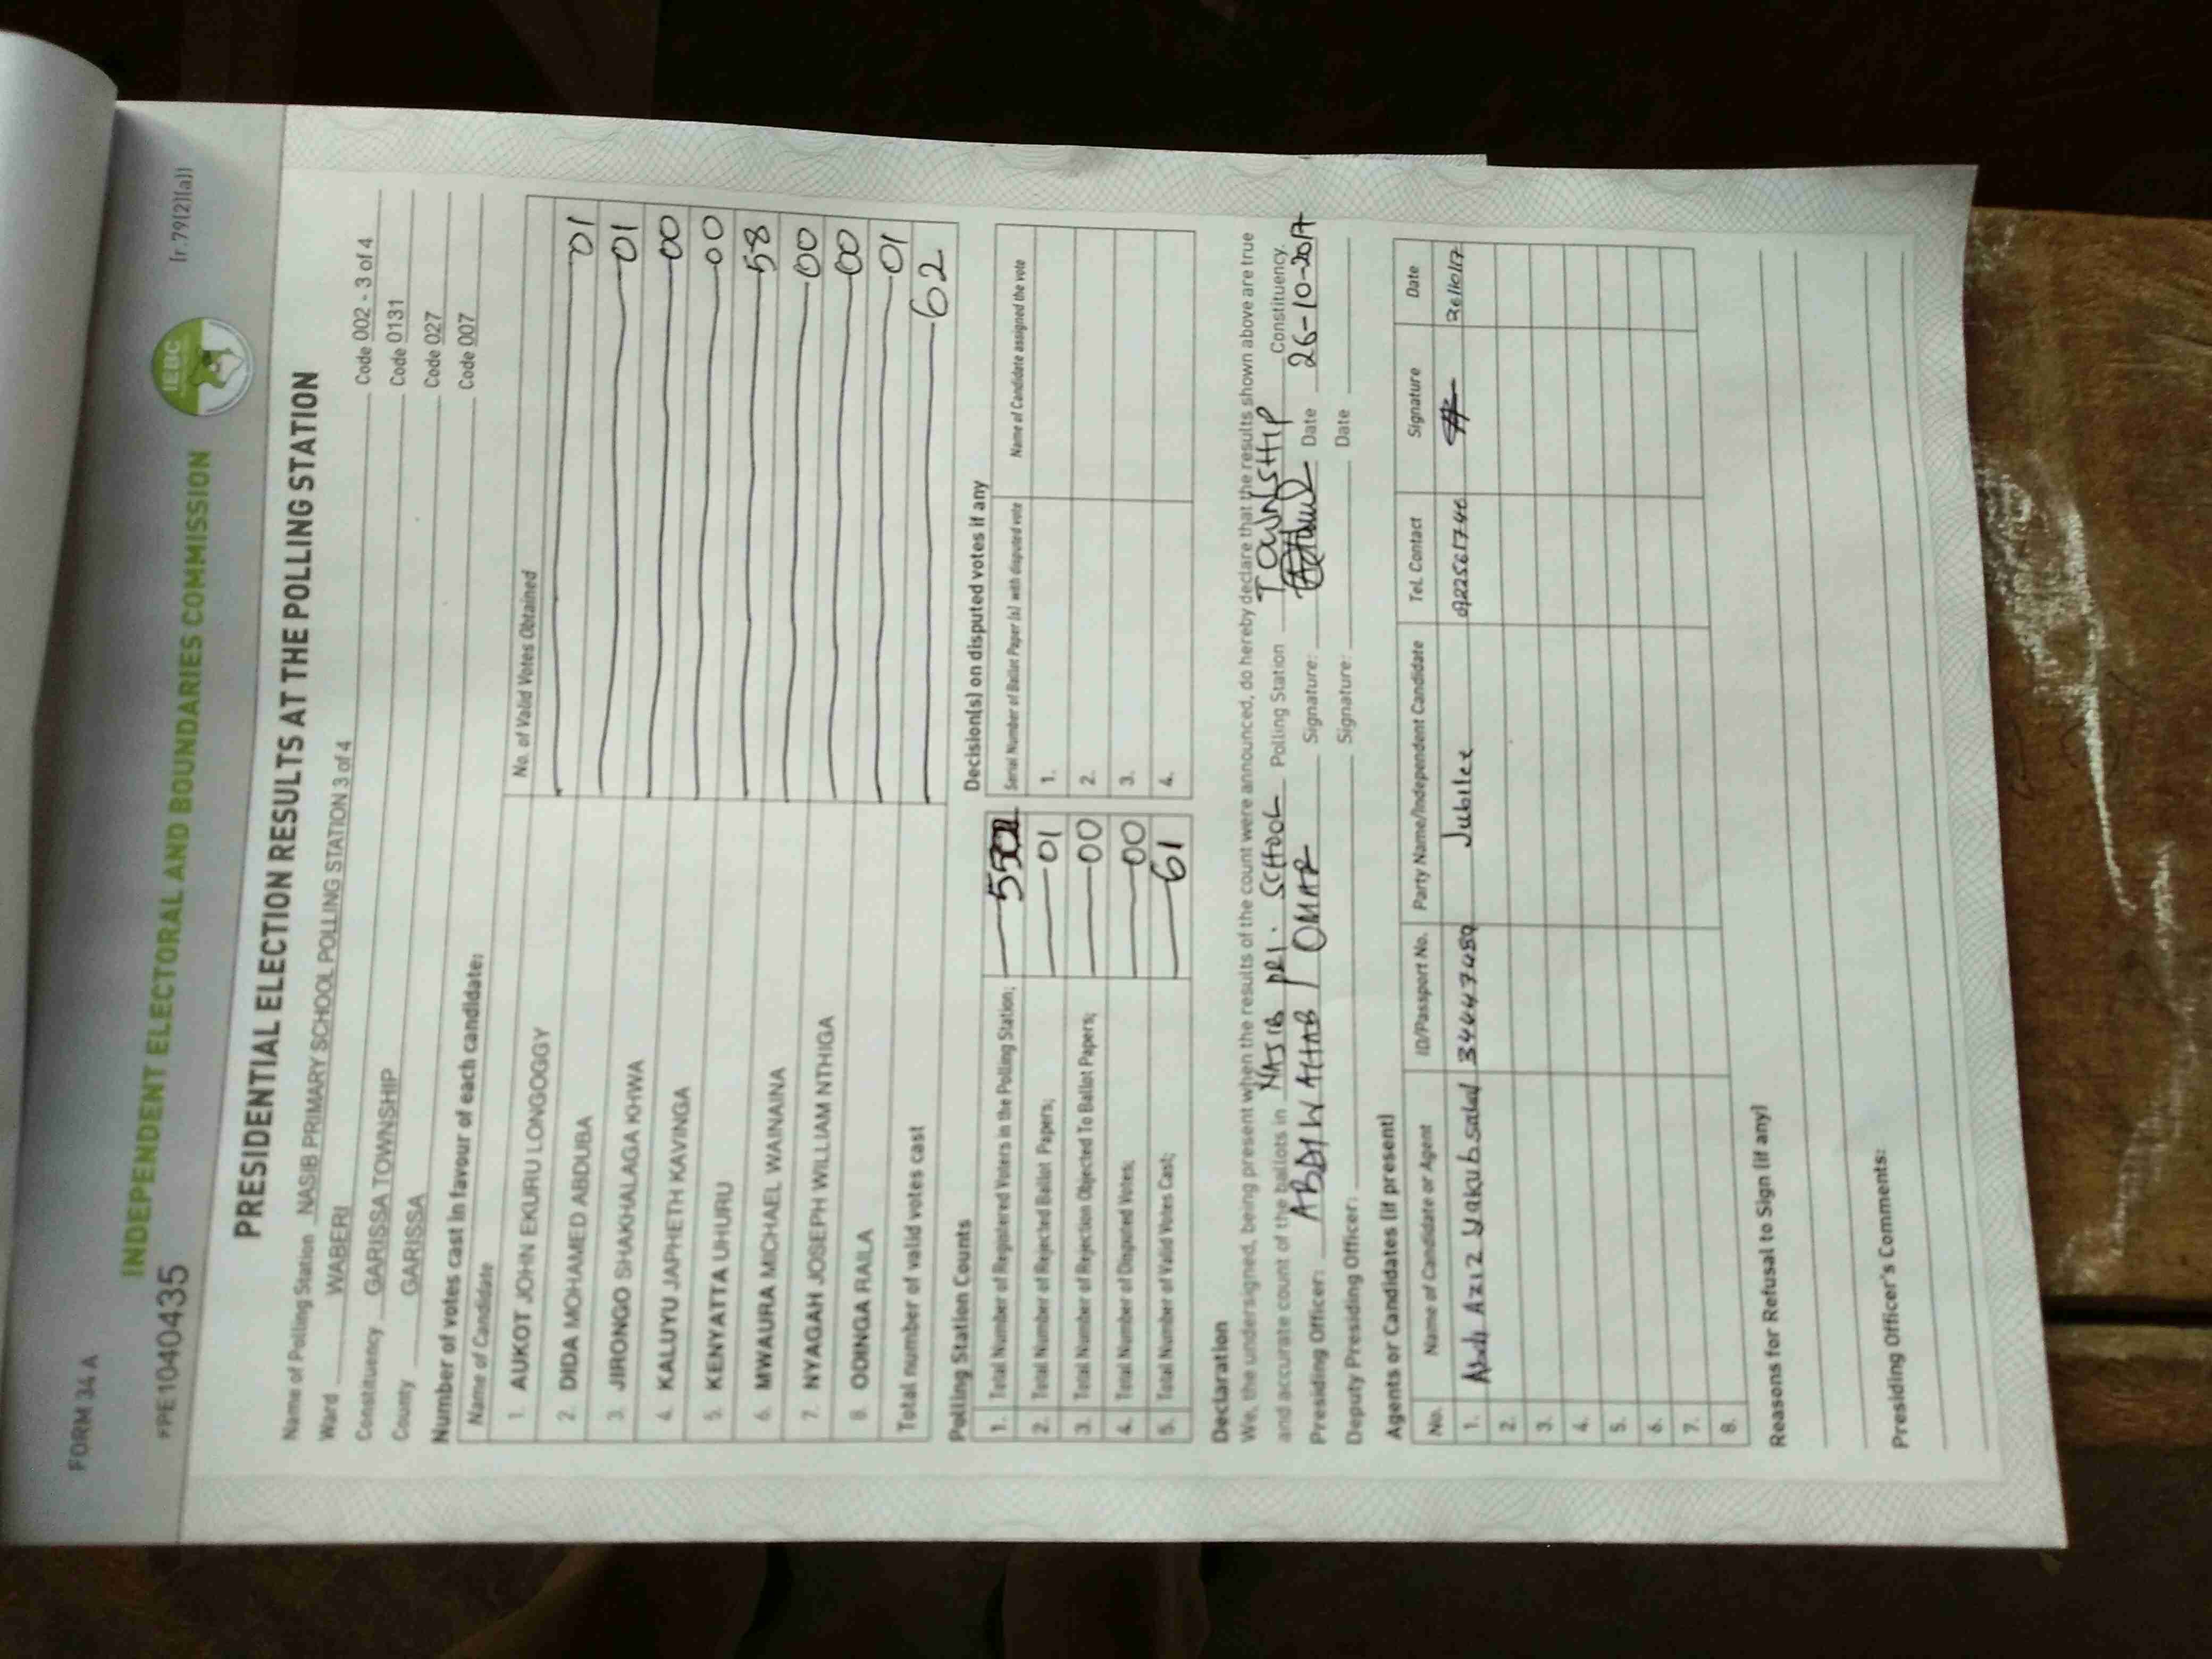 FORM 34 A
INDEPENDENT ELECTORAL AND BOUNDARIES COMMISSION
IEBC
(r.79(2)(a))
*PE1040435
PRESIDENTIAL ELECTION RESULTS AT THE POLLING STATION
Name of Polling Station NASIB PRIMARY SCHOOL POLLING STATION 3 of 4 Code 002 - 3 of 4
Ward WABERI Code 0131
Constituency GARISSA TOWNSHIP Code 027
County GARISSA Code 007
Number of votes cast in favour of each candidate:
Name of Candidate No. of Valid Votes Obtained
1. AUKOT JOHN EKURU LONGOGGY 01
2. DIDA MOHAMED ABDUBA 01
3. JIRONGO SHAKHALAGA KHWA 00
4. KALUYU JAPHETH KAVINGA 00
5. KENYATTA UHURU 58
6. MWAURA MICHAEL WAINAINA 00
7. NYAGAH JOSEPH WILLIAM NTHIGA 00
8. ODINGA RAILA 01
Total number of valid votes cast 62
Polling Station Counts
1. Total Number of Registered Voters in the Polling Station;
2. Total Number of Rejected Ballot Papers; 01
3. Total Number of Rejection Objected To Ballot Papers; 00
4. Total Number of Disputed Votes; 00
5. Total Number of Valid Votes Cast; 61
Decision(s) on disputed votes if any
Serial Number of Ballot Paper (s) with disputed vote Name of Candidate assigned the vote
1.
2.
3.
4.
Declaration
We, the undersigned, being present when the results of the count were announced, do hereby declare that the results shown above are true
and accurate count of the ballots in NASIB PRI. SCHOOL Polling Station TOWNSHIP Constituency.
Presiding Officer: ABDIWAHAB I OMAR Signature: Date 26-10-2017
Deputy Presiding Officer: Signature: Date
Agents or Candidates (if present)
No. Name of Candidate or Agent ID/Passport No. Party Name/Independent Candidate Tel. Contact Signature Date
1. Abdi Aziz Yakub Salad 34447489 Jubilee 26/10/17
2.
3.
4.
5.
6.
7.
8.
Reasons for Refusal to Sign (if any)
Presiding Officer's Comments: